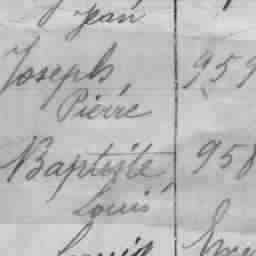 Jean
Joseph, 959
Pierre
Baptiste, 958
Louis